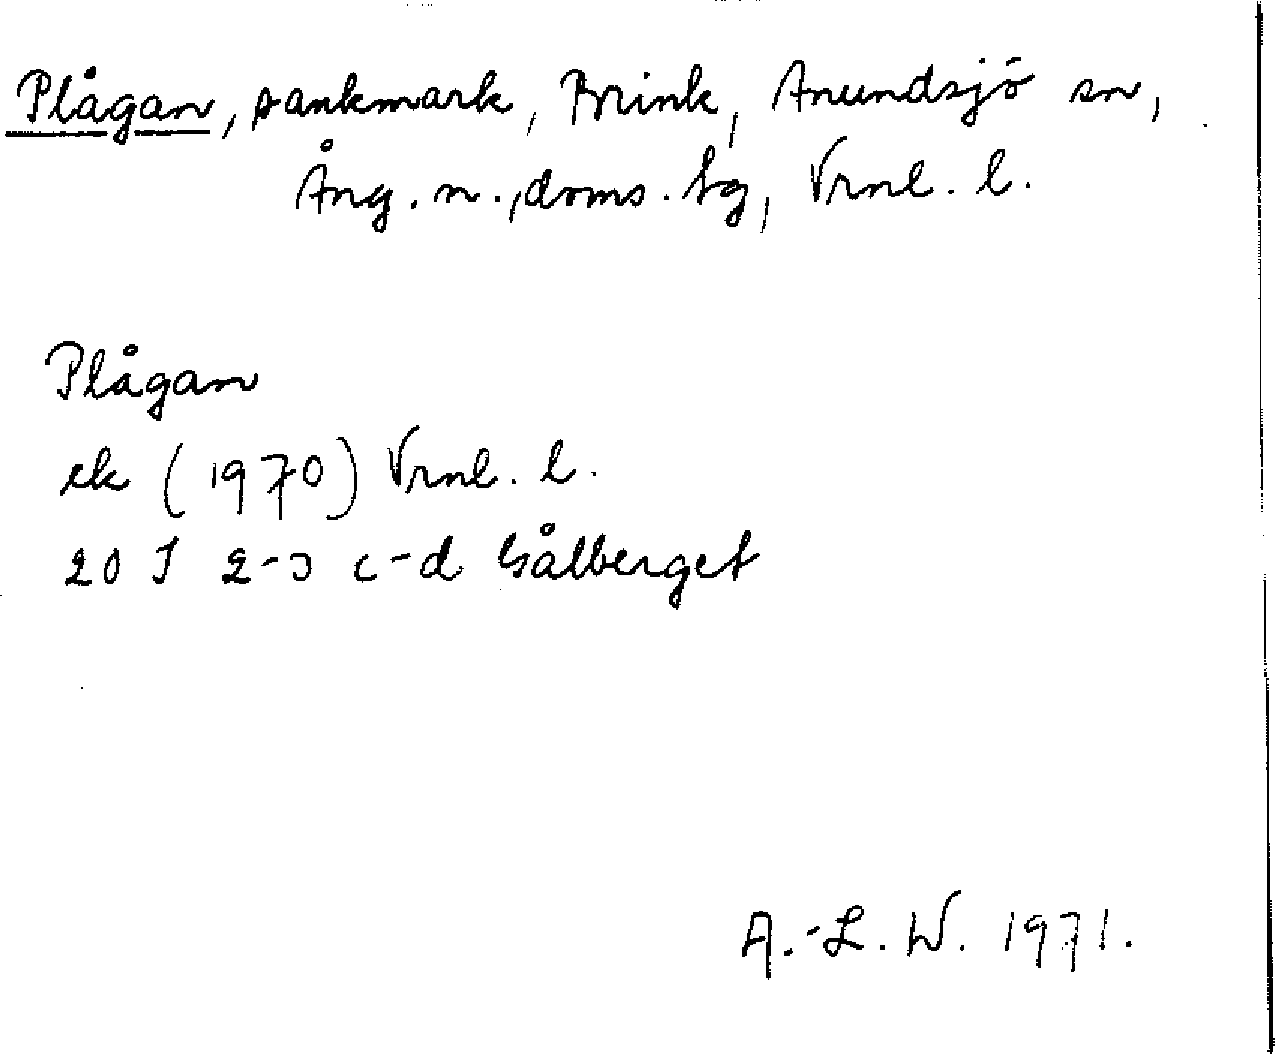 Plågan, sankmark, Brink, Anundsjö sn,
Ång. n., doms. tg, Vrnl. l.
Plågan
ek (1970) Vrnl. l.
20 J 2-3 c-d Gålberget
A.-L. W. 1971.